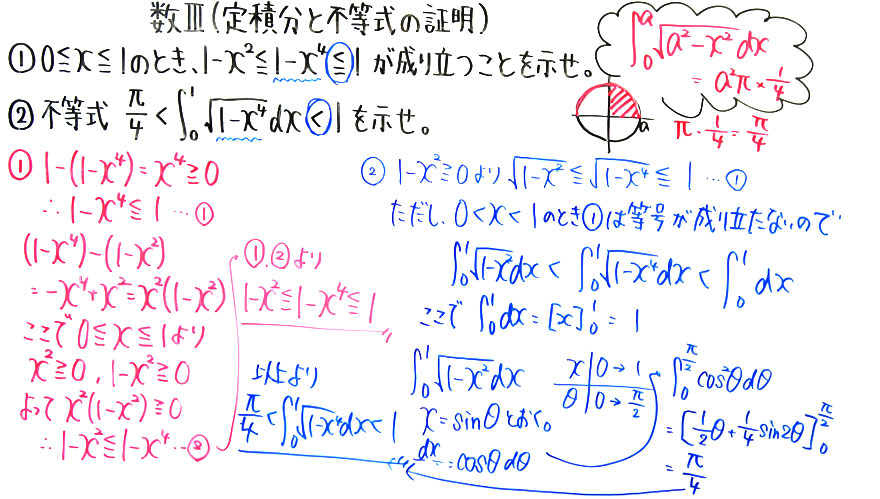 数Ⅲ(定積分と不等式の証明)
① 0≦x≦1のとき、1-x²≦1-x⁴≦1 が成り立つことを示せ。
② 不等式 π/4 < ∫₀¹ √(1-x⁴) dx < 1 を示せ。
∫₀ᵃ √(a²-x²) dx
= a²π × 1/4
a
π・1/4 = π/4
① 1-(1-x⁴) = x⁴ ≧ 0
∴ 1-x⁴ ≦ 1 … ①
(1-x⁴)-(1-x²)
= -x⁴+x² = x²(1-x²)
ここで 0≦x≦1より
x²≧0, 1-x²≧0
よって x²(1-x²)≧0
∴ 1-x²≦1-x⁴ … ②
①,②より
1-x²≦1-x⁴≦1
② 1-x²≧0より √(1-x²) ≦ √(1-x⁴) ≦ 1 … ①
ただし、0<x<1のとき①は等号が成り立たないので
∫₀¹ √(1-x²) dx < ∫₀¹ √(1-x⁴) dx < ∫₀¹ dx
ここで ∫₀¹ dx = [x]₀¹ = 1
∫₀¹ √(1-x²) dx
x = sinθ とおく。
dx = cosθ dθ
x | 0 → 1
θ | 0 → π/2
∫₀^(π/2) cos²θ dθ
= [1/2 θ + 1/4 sin2θ]₀^(π/2)
= π/4
以上より
π/4 < ∫₀¹ √(1-x⁴) dx < 1